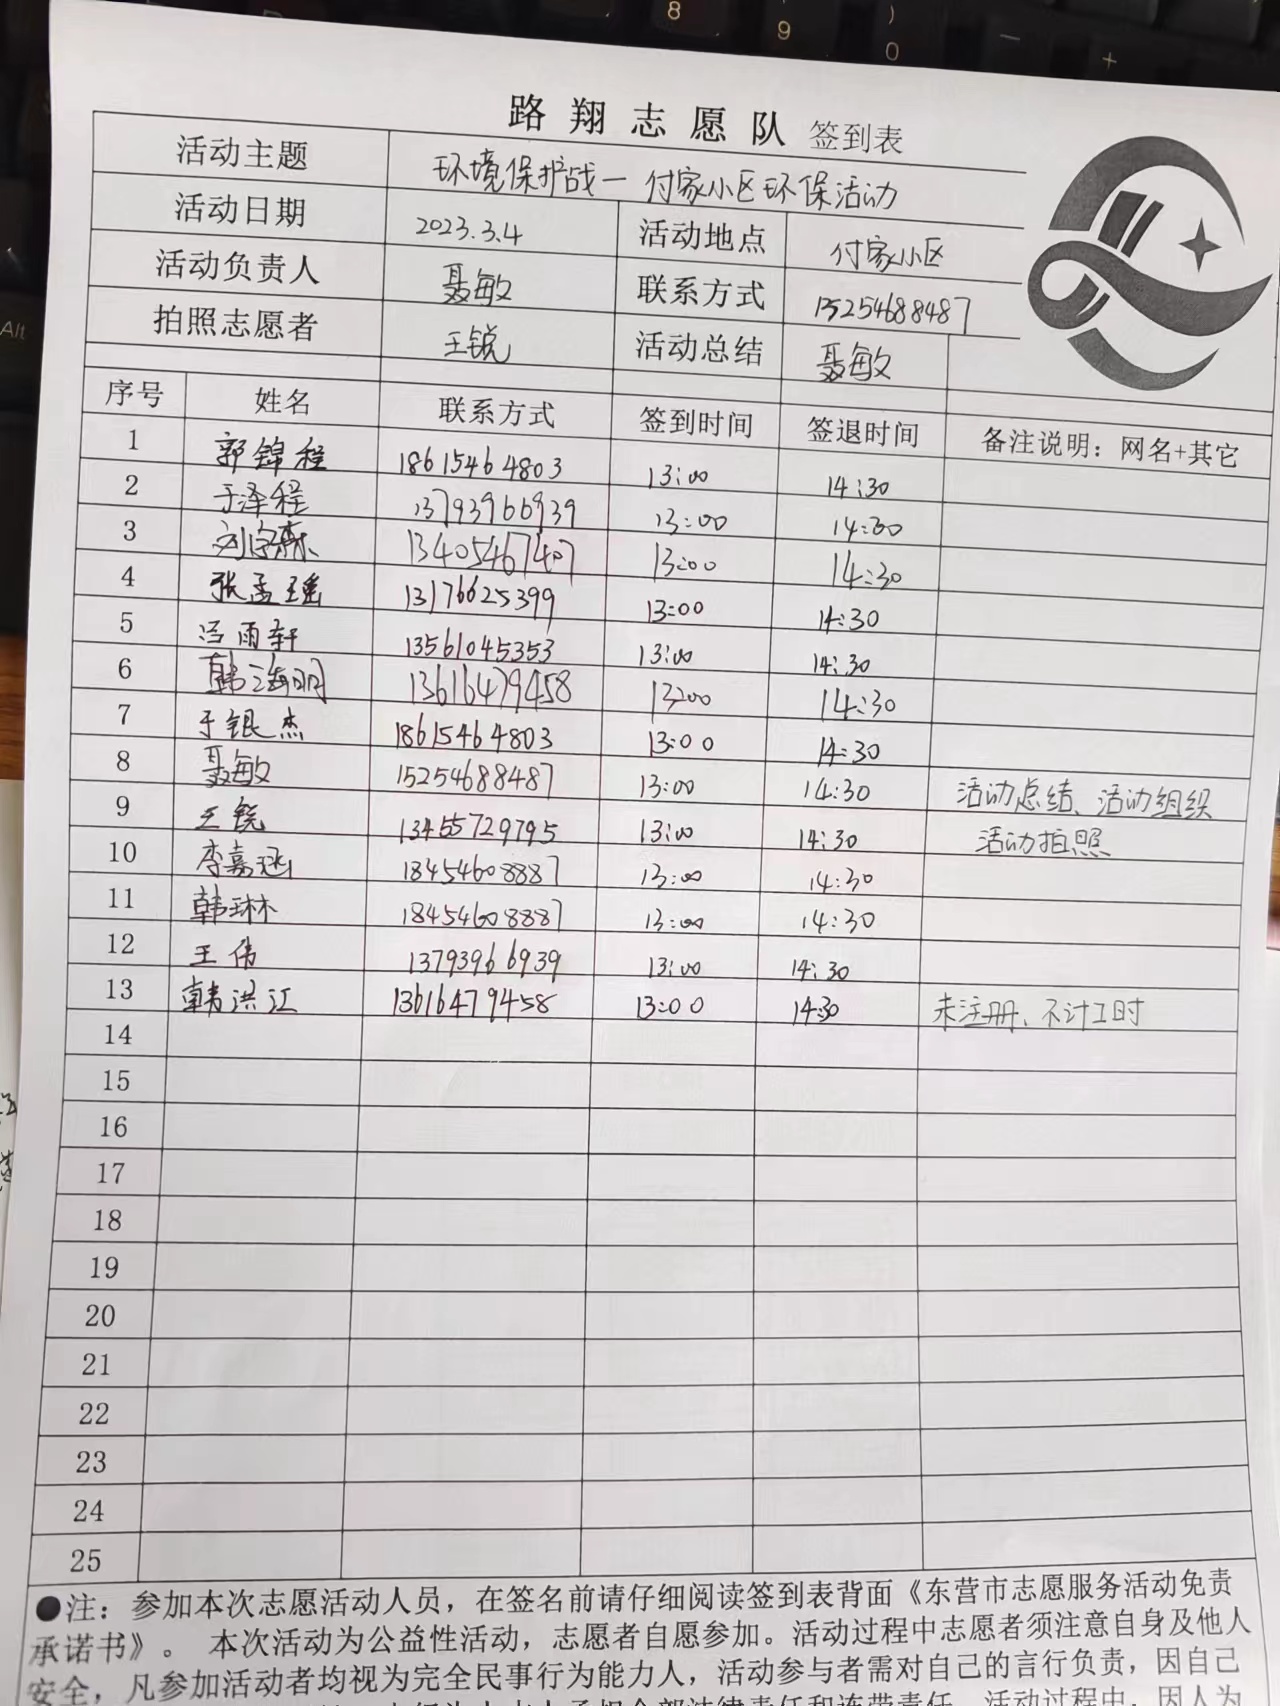 8
9
)
0
—
+
Alt
路翔志愿队 签到表
活动主题 环境保护战—付家小区环保活动
活动日期 2023.3.4 活动地点 付家小区
活动负责人 聂敏 联系方式 15254688487
拍照志愿者 王锐 活动总结 聂敏
序号 姓名 联系方式 签到时间 签退时间 备注说明：网名+其它
1 郭锦程 18615464803 13:00 14:30
2 于泽程 13793966939 13:00 14:30
3 13405467407 13:00 14:30
4 张孟瑶 13176625399 13:00 14:30
5 冯雨轩 13561045353 13:00 14:30
6 韩海明 13616479458 13:00 14:30
7 于银杰 18615464803 13:00 14:30
8 聂敏 15254688487 13:00 14:30 活动总结、活动组织
9 王锐 13455729795 13:00 14:30 活动拍照
10 李嘉涵 18454608887 13:00 14:30
11 韩琳 18454608887 13:00 14:30
12 王伟 13793966939 13:00 14:30
13 韩洪江 13616479458 13:00 14:30 未注册、不计工时
14
15
16
17
18
19
20
21
22
23
24
25
●注：参加本次志愿活动人员，在签名前请仔细阅读签到表背面《东营市志愿服务活动免责
承诺书》。 本次活动为公益性活动，志愿者自愿参加。活动过程中志愿者须注意自身及他人
安全，凡参加活动者均视为完全民事行为能力人，活动参与者需对自己的言行负责，因自己